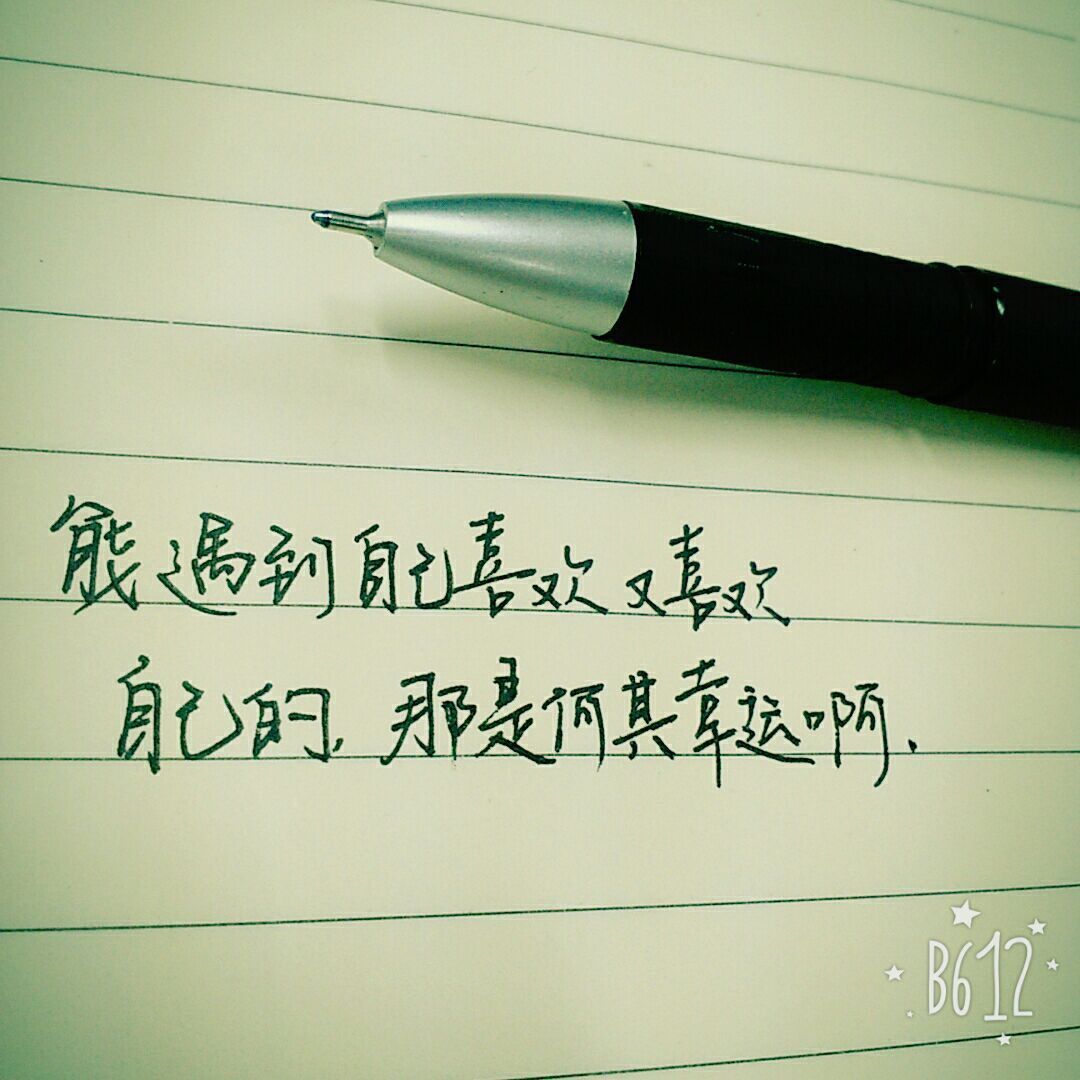 能遇到自己喜欢又喜欢
自己的.那是何其幸运啊.
B612